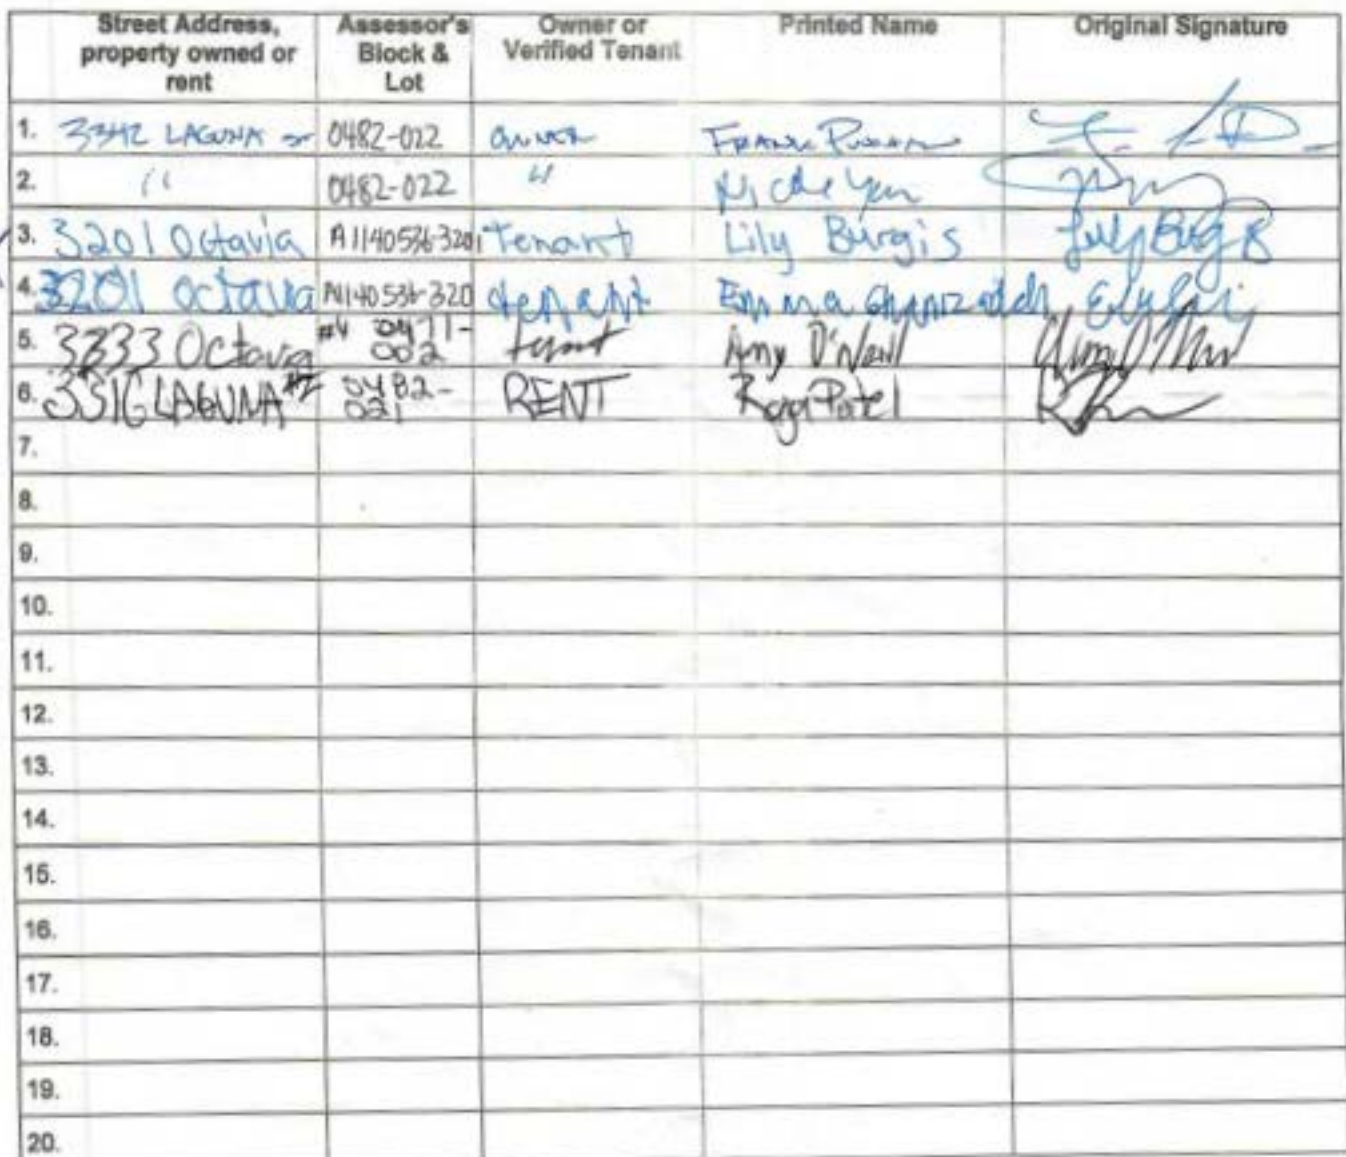 Street Address, property owned or rent Assessor's Block & Lot Owner or Verified Tenant Printed Name Original Signature
1. 3342 LAGUNA ST 0482-022 OWNER FRANK
2. " 0482-022 " Nicole Yun
3. 3201 Octavia A1140536-3201 Tenant Lily Burgis Lily Burgis
4. 3201 Octavia A1140536-320 tenant Emma
5. 3333 Octavia #4 0471-002 tenant Amy O'Neill
6. 3316 LAGUNA #2 0482-021 RENT Patel
7.
8.
9.
10.
11.
12.
13.
14.
15.
16.
17.
18.
19.
20.